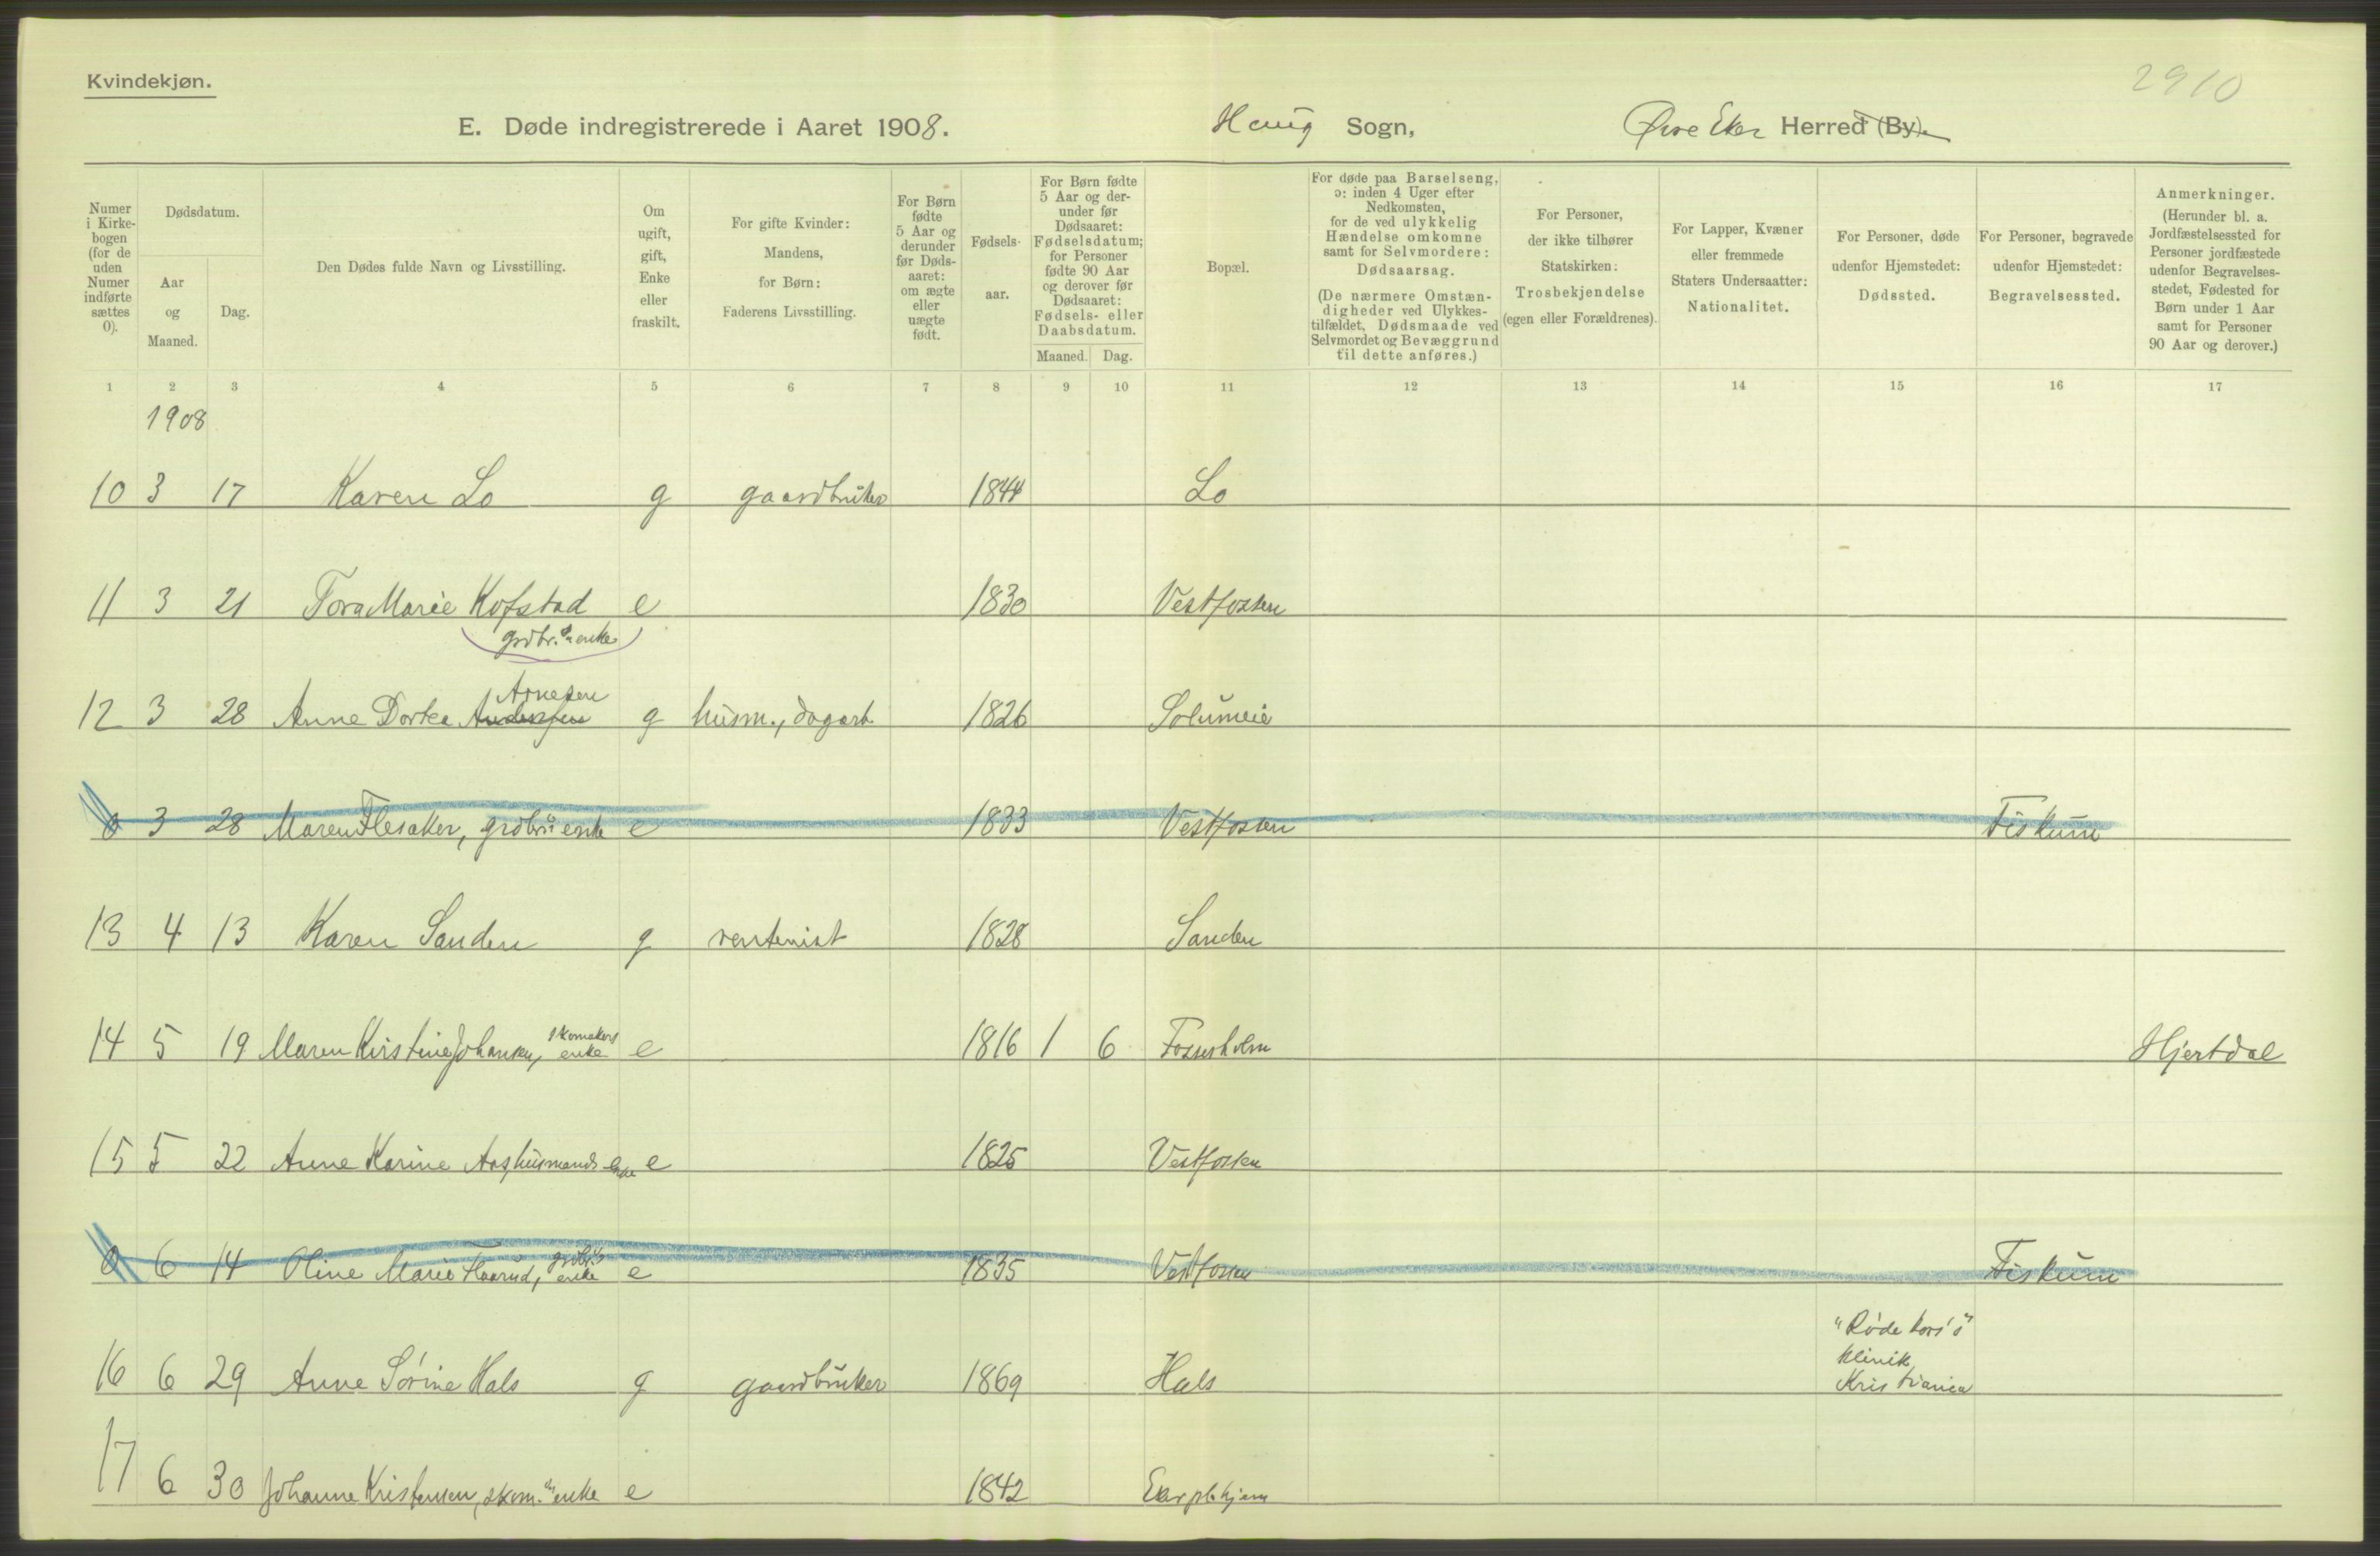 Kvindekjøn.
2910
E. Døde indregistrerede i Aaret 1908. Haug Sogn, Øvre Eker Herred (By).
Numer
i Kirke-
bogen
(for de
uden
Numer
indførte
sættes
0).
Dødsdatum.
Aar
og
Maaned.
Dag.
Den Dødes fulde Navn og Livsstilling.
Om
ugift,
gift,
Enke
eller
fraskilt.
For gifte Kvinder:
Mandens,
for Børn:
Faderens Livsstilling.
For Børn
fødte
5 Aar og
derunder
før Døds-
aaret:
om ægte
eller
uægte
født.
Fødsels-
aar.
For Børn fødte
5 Aar og der-
under før
Dødsaaret:
Fødselsdatum;
for Personer
fødte 90 Aar
og derover før
Dødsaaret:
Fødsels- eller
Daabsdatum.
Maaned. Dag.
Bopæl.
For døde paa Barselseng,
ɔ: inden 4 Uger efter
Nedkomsten,
for de ved ulykkelig
Hændelse omkomne
samt for Selvmordere:
Dødsaarsag.
(De nærmere Omstæn-
digheder ved Ulykkes-
tilfældet, Dødsmaade ved
Selvmordet og Bevæggrund
til dette anføres.)
For Personer,
der ikke tilhører
Statskirken:
Trosbekjendelse
(egen eller Forældrenes).
For Lapper, Kvæner
eller fremmede
Staters Undersaatter:
Nationalitet.
For Personer, døde
udenfor Hjemstedet:
Dødssted.
For Personer, begravede
udenfor Hjemstedet:
Begravelsessted.
Anmerkninger.
(Herunder bl. a.
Jordfæstelsessted for
Personer jordfæstede
udenfor Begravelses-
stedet, Fødested for
Børn under 1 Aar
samt for Personer
90 Aar og derover.)
1 2 3 4 5 6 7 8 9 10 11 12 13 14 15 16 17
1908
10 3 17 Karen Lo g gaardbruker 1844 Lo
11 3 21 Tora Marie Kofstad e 1830 Vestfossen
grdbr.s enke
Arnesen
12 3 28 Anne Dortea Andersen g husm., dagarb. 1826 Solumeie
0 3 28 Maren Flesaker, grdbr.s enke e 1833 Vestfossen Fiskum
13 4 13 Karen Sanden g rentenist 1828 Sanden
skomakers
14 5 19 Maren Kirstine Johansen, enke e 1816 1 6 Fossesholm Hjertdal
15 5 22 Anne Karine Aas, husmands enke e 1825 Vestfossen
grdbr.s
0 6 14 Oline Marie Flaarud, enke e 1835 Vestfossen Fiskum
"Røde kors's"
klinik,
16 6 29 Anne Sørine Hals g gaardbruker 1869 Hals Kristiania
17 6 30 Johanne Kristensen, skom.s enke e 1842 Eker plehjem